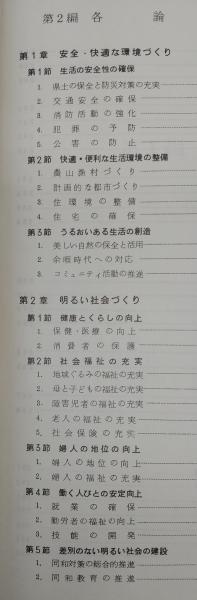 第2編 各 論
第1章 安全・快適な環境づくり
第1節 生活の安全性の確保
1. 県土の保全と防災対策の充実
2. 交通安全の確保
3. 消防活動の強化
4. 犯罪の予防
5. 公害の防止
第2節 快適・便利な生活環境の整備
1. 農山漁村づくり
2. 計画的な都市づくり
3. 住環境の整備
4. 住宅の確保
第3節 うるおいある生活の創造
1. 美しい自然の保全と活用
2. 余暇時代への対応
3. コミュニティ活動の推進
第2章 明るい社会づくり
第1節 健康とくらしの向上
1. 保健・医療の向上
2. 消費者の保護
第2節 社会福祉の充実
1. 地域ぐるみの福祉の充実
2. 母と子どもの福祉の充実
3. 障害児者の福祉の充実
4. 老人の福祉の充実
5. 社会保険の充実
第3節 婦人の地位の向上
1. 婦人の地位の向上
2. 婦人の福祉の充実
第4節 働く人びとの安定向上
1. 就業の確保
2. 勤労者の福祉の向上
3. 技能の開発
第5節 差別のない明るい社会の建設
1. 同和対策の総合的推進
2. 同和教育の推進